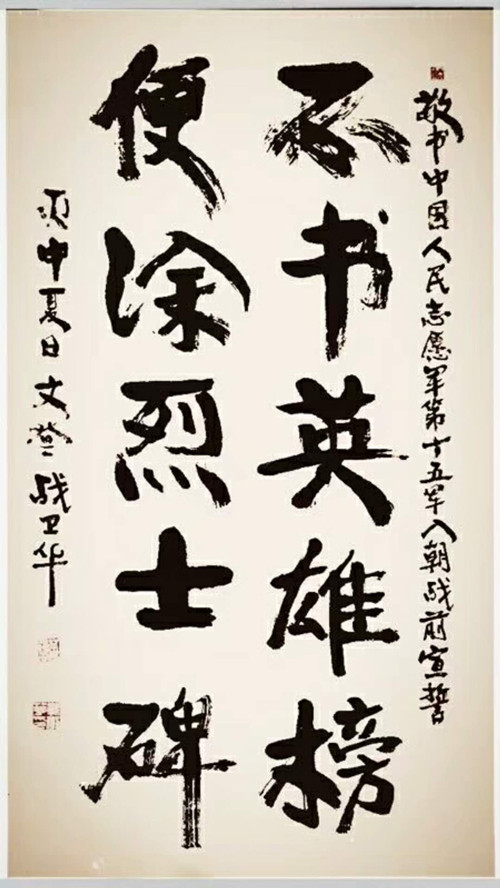 敬书中国人民志愿军第十五军入朝战前宣誓
不书英雄榜
便涂烈士碑
丙申夏日文登战卫华